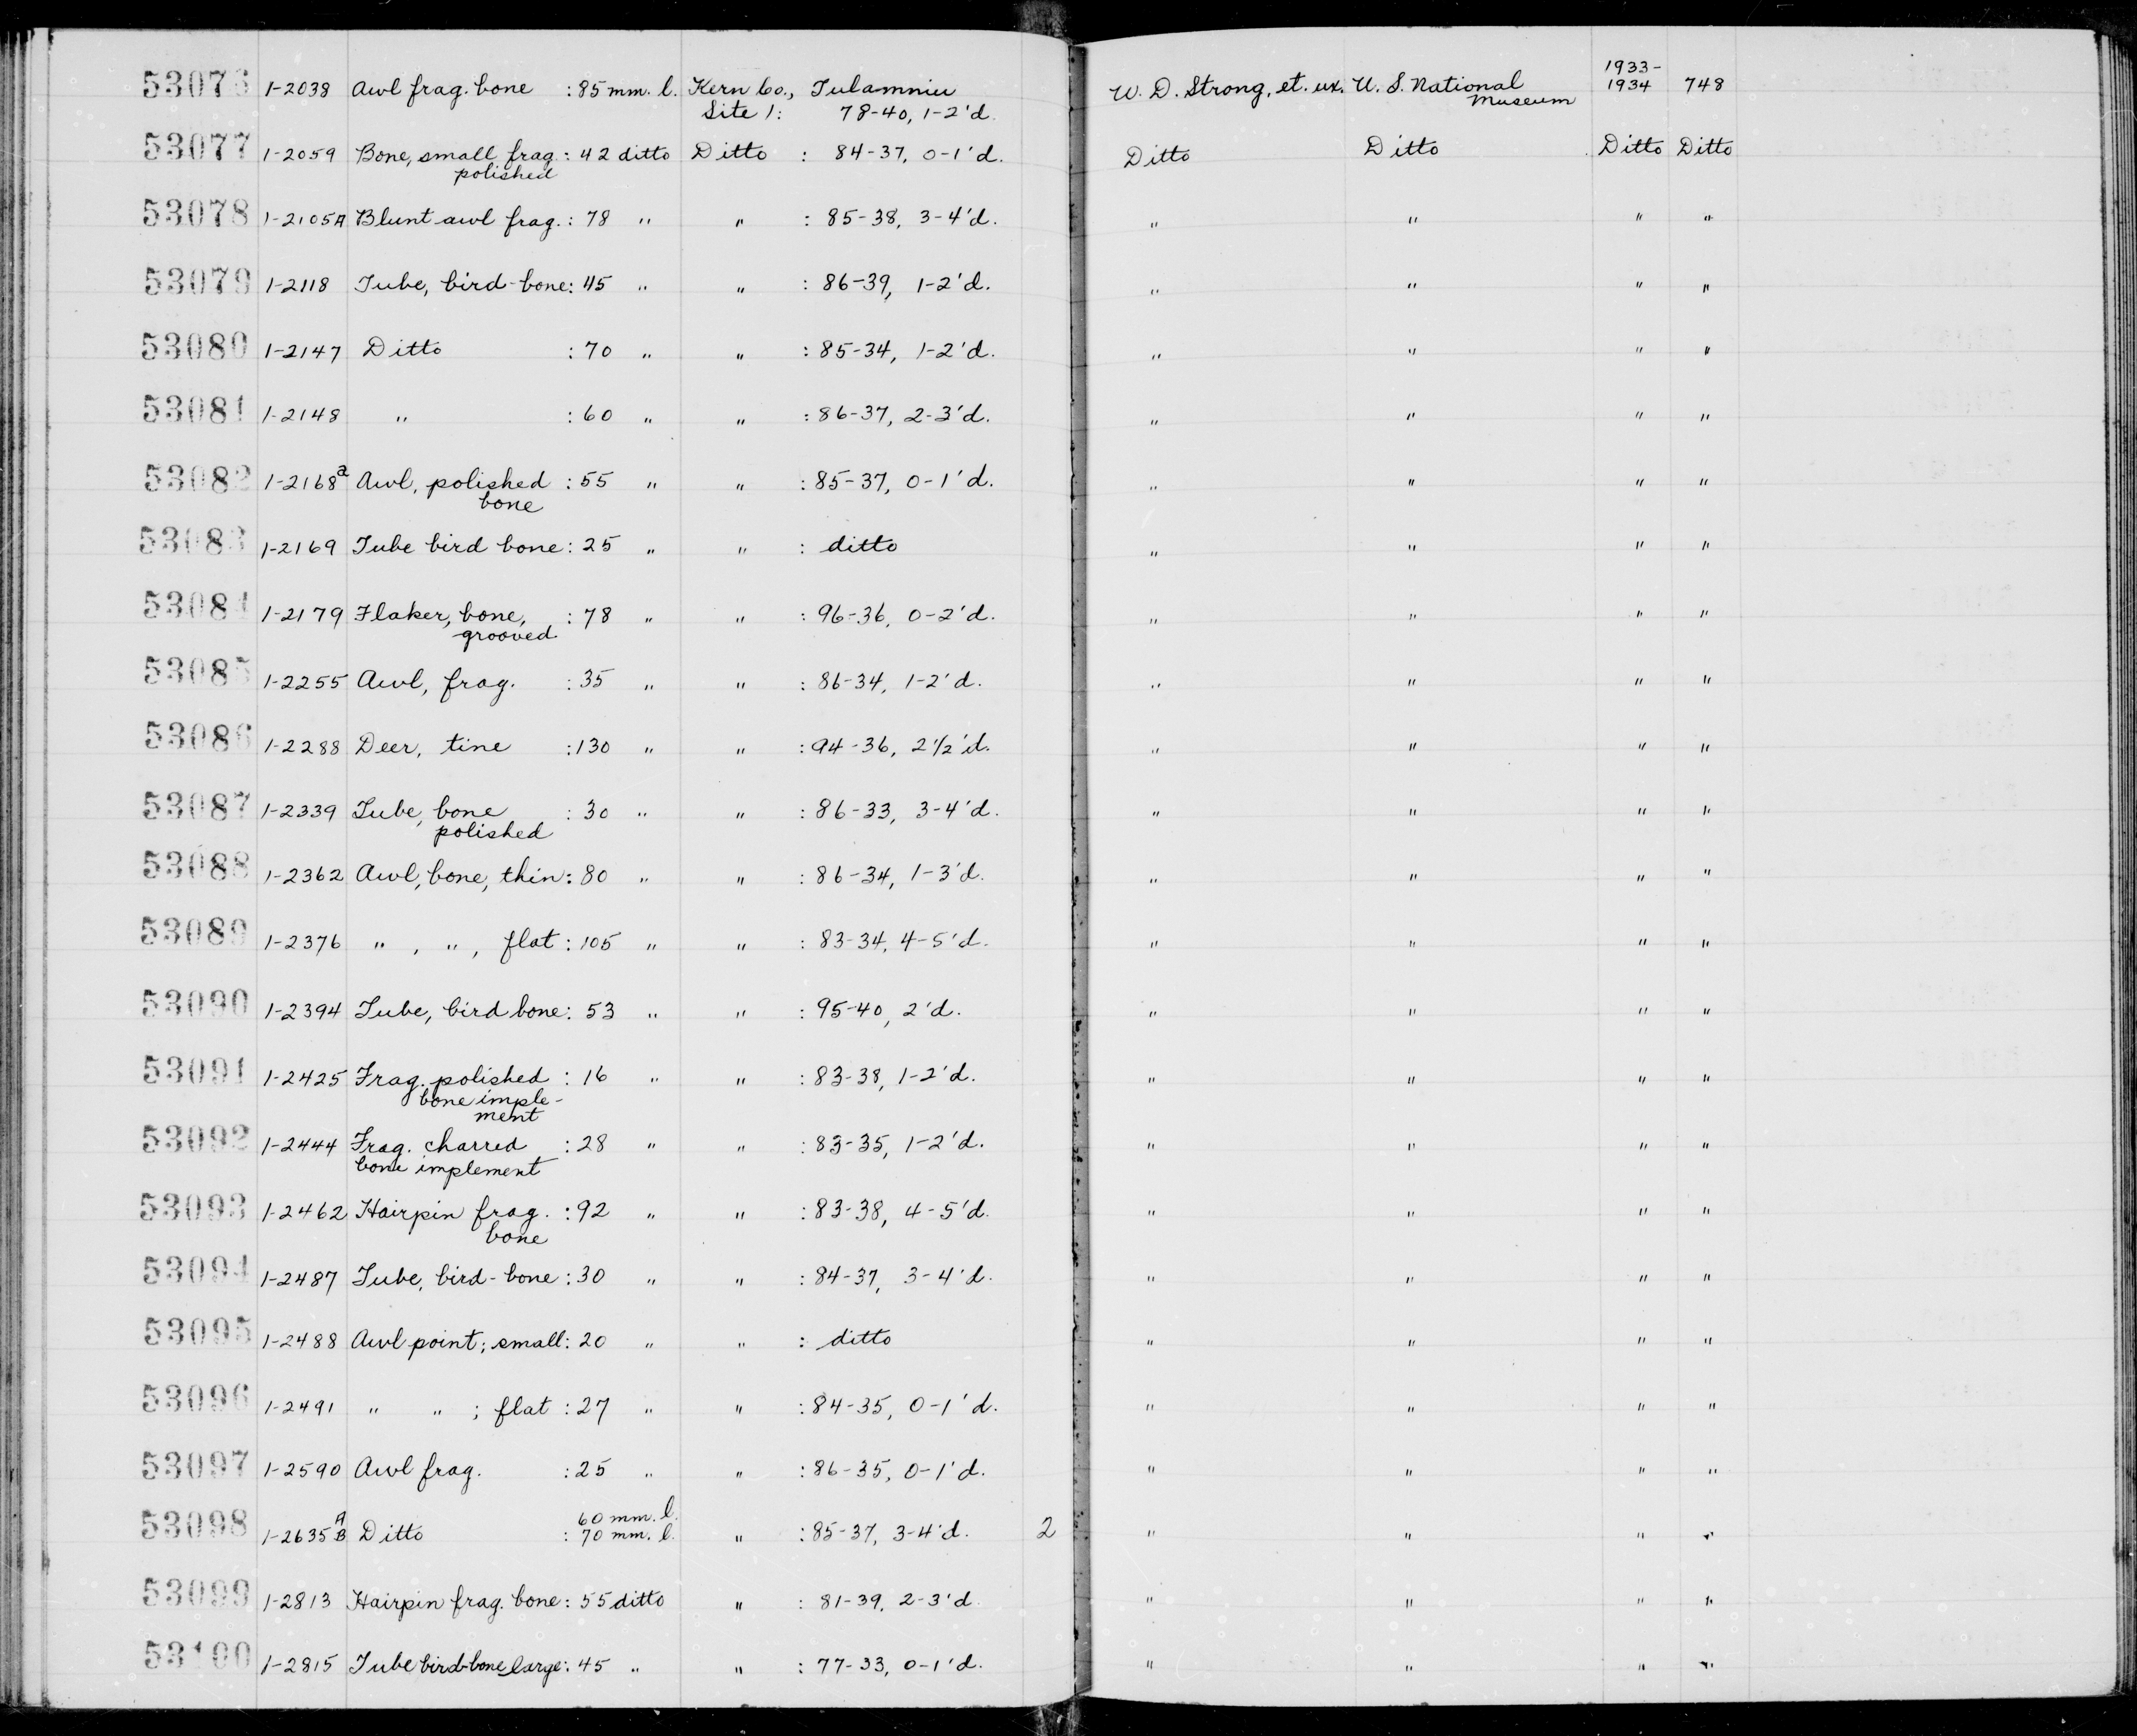 53076 1-2038 Awl frag. bone : 85 mm. l. Kern Co., Tulamniu W. D. Strong, et. ux. U. S. National Museum 1933-1934 748
Site 1: 78-40, 1-2'd.
53077 1-2059 Bone, small frag. : 42 ditto Ditto : 84-37, 0-1'd. Ditto Ditto Ditto Ditto
polished
53078 1-2105A Blunt awl frag. : 78 " " : 85-38, 3-4'd. " " " "
53079 1-2118 Tube, bird-bone : 45 " " : 86-39, 1-2'd. " " " "
53080 1-2147 Ditto : 70 " " : 85-34, 1-2'd. " " " "
53081 1-2148 " : 60 " " : 86-37, 2-3'd. " " " "
53082 1-2168a Awl, polished : 55 " " : 85-37, 0-1'd. " " " "
bone
53083 1-2169 Tube bird bone : 25 " " : ditto " " " "
53084 1-2179 Flaker, bone, : 78 " " : 96-36, 0-2'd. " " " "
grooved
53085 1-2255 Awl, frag. : 35 " " : 86-34, 1-2'd. " " " "
53086 1-2288 Deer, tine : 130 " " : 94-36, 2 1/2'd. " " " "
53087 1-2339 Tube, bone : 30 " " : 86-33, 3-4'd. " " " "
polished
53088 1-2362 Awl, bone, thin : 80 " " : 86-34, 1-3'd. " " " "
53089 1-2376 " , " , flat : 105 " " : 83-34, 4-5'd. " " " "
53090 1-2394 Tube, bird bone : 53 " " : 95-40, 2'd. " " " "
53091 1-2425 Frag. polished : 16 " " : 83-38, 1-2'd. " " " "
bone imple-
ment
53092 1-2444 Frag. charred : 28 " " : 83-35, 1-2'd. " " " "
bone implement
53093 1-2462 Hairpin frag. : 92 " " : 83-38, 4-5'd. " " " "
bone
53094 1-2487 Tube, bird-bone : 30 " " : 84-37, 3-4'd. " " " "
53095 1-2488 Awl point; small : 20 " " : ditto " " " "
53096 1-2491 " " ; flat : 27 " " : 84-35, 0-1'd. " " " "
53097 1-2590 Awl frag. : 25 " " : 86-35, 0-1'd. " " " "
A 60 mm. l.
53098 1-2635 B Ditto : 70 mm. l. " : 85-37, 3-4'd. 2 " " " "
53099 1-2813 Hairpin frag. bone : 55 ditto " : 81-39, 2-3'd " " " "
53100 1-2815 Tube bird-bone large : 45 " " : 77-33, 0-1'd. " " " "